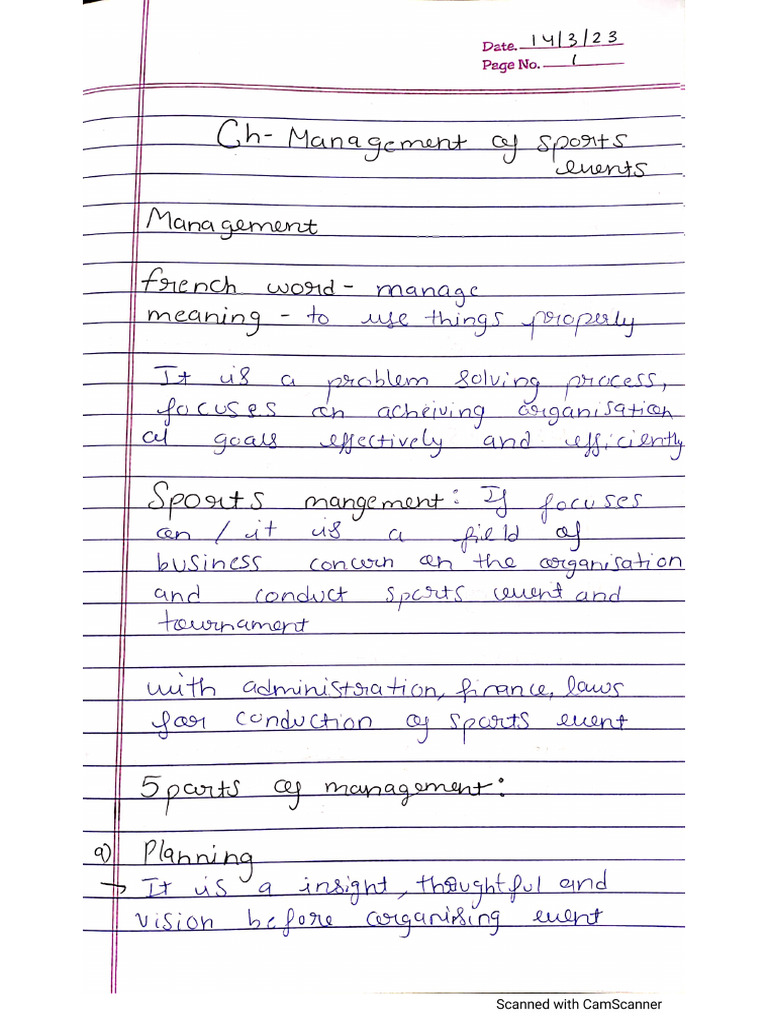 Date. 14/3/23
Page No. 1
Ch- Management of sports
events
Management
french word - manage
meaning - to use things properly
It is a problem solving process,
focuses on acheiving organisation
al goals effectively and efficiently
Sports mangement: If focuses
on / it is a field of
business concern on the organisation
and conduct sports event and
tournament
with administration, finance, laws
for conduction of sports event
5 parts of management:
a) Planning
→ It is a insight, thoughtful and
vision before organising event
Scanned with CamScanner